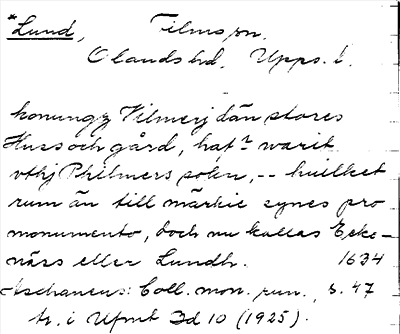 *Lund, Films sn.
Olands hd. Upps. l.
konungz Vilmerj dän stores
Huss och gård, haf:r warit
vthj Philmers sokn, -- huilket
rum än till märkie synes pro
monumento, doch nu kallas Ecke-
näss eller Lundh. 1634
Aschaneus: Coll. mon. run., s. 47
tr. i Ufmt Bd 10 (1925).